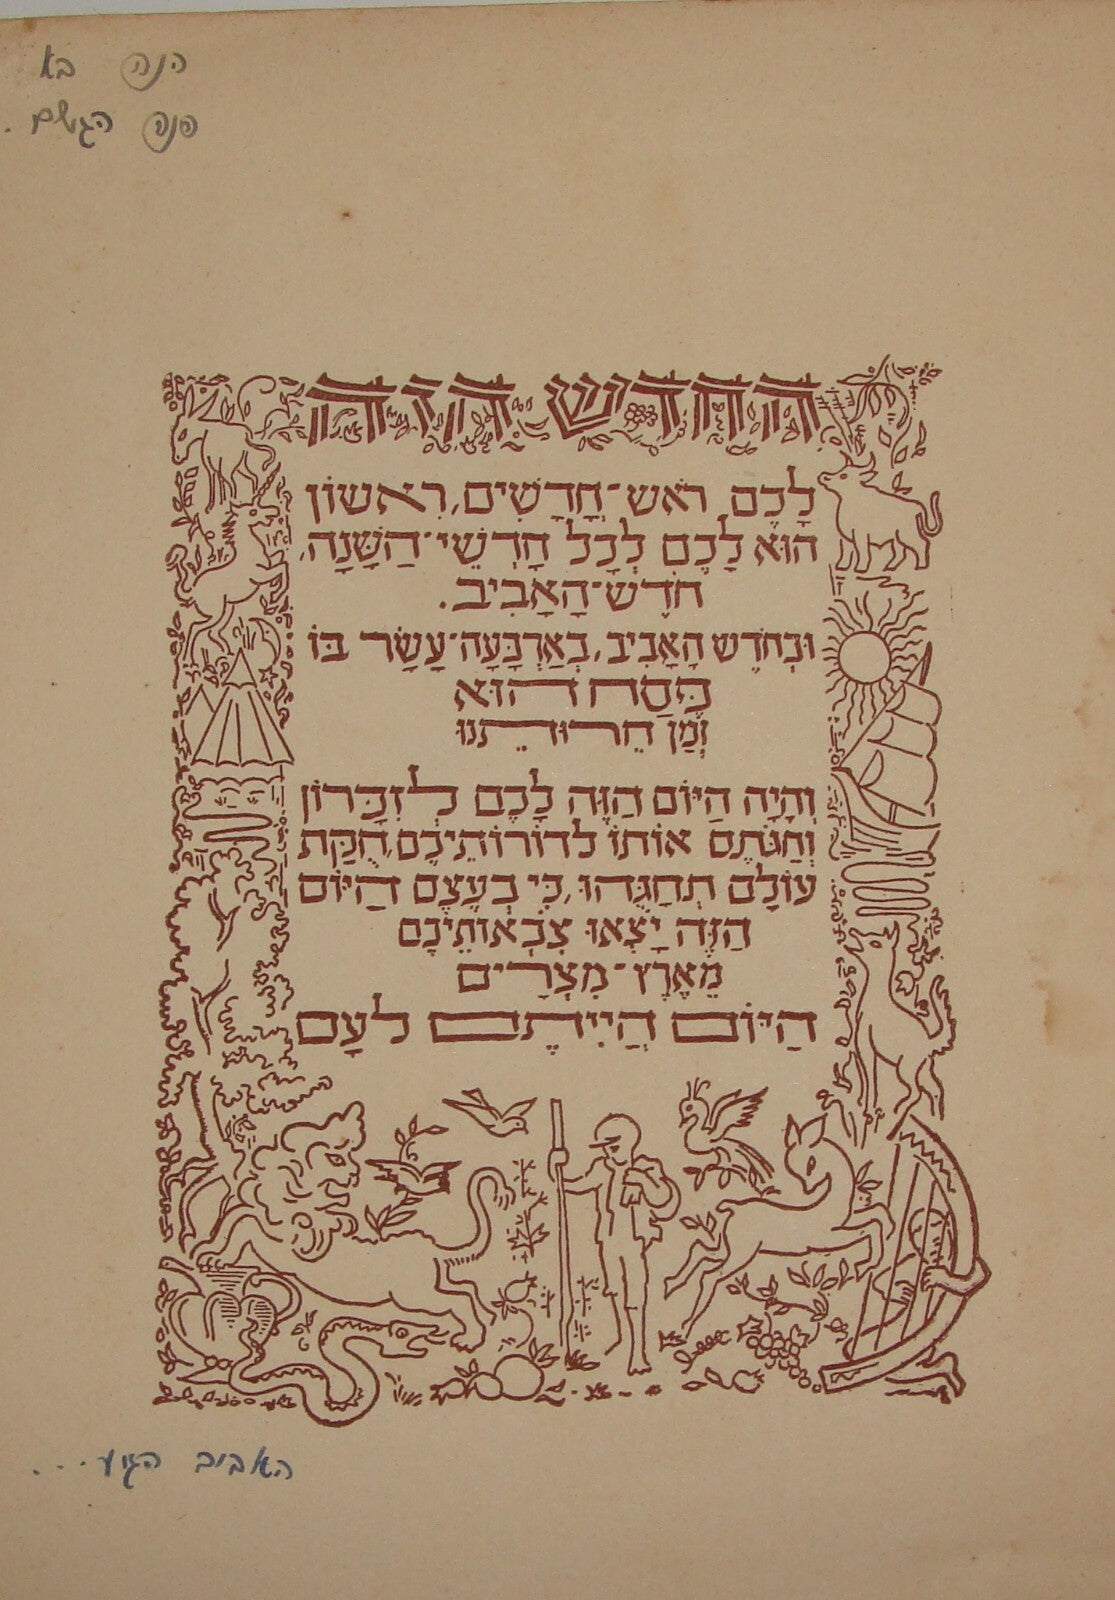 הנה בא
פנה הגשם.
החדש הזה
לָכֶם רֹאש־חֳדָשִׁים, רִאשׁוֹן
הוּא לָכֶם לְכָל חָדְשֵׁי־הַשָּׁנָה,
חֹדֶשׁ־הָאָבִיב.
וּבְחֹדֶשׁ הָאָבִיב, בְּאַרְבָּעָה־עָשָׂר בּוֹ
פֶּסַח הוּא
זְמַן חֵרוּתֵנוּ
וְהָיָה הַיּוֹם הַזֶּה לָכֶם לְזִכָּרוֹן
וְחַגֹּתֶם אוֹתוֹ לְדוֹרוֹתֵיכֶם, חֻקַּת
עוֹלָם תְּחָגֻּהוּ, כִּי בְּעֶצֶם הַיּוֹם
הַזֶּה יָצְאוּ צִבְאוֹתֵיכֶם
מֵאֶרֶץ־מִצְרָיִם
הַיּוֹם הֱיִיתֶם לְעָם
האביב הגיע...